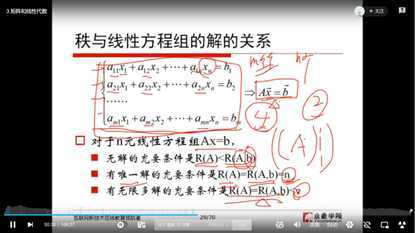 3.矩阵和线性代数
秩与线性方程组的解的关系
a₁₁x₁ + a₁₂x₂ + ⋯ + a₁ₙxₙ = b₁
a₂₁x₁ + a₂₂x₂ + ⋯ + a₂ₙxₙ = b₂
⋯⋯
aₘ₁x₁ + aₘ₂x₂ + ⋯ + aₘₙxₙ = bₘ
⇒ Ax⃗ = b⃗
④ ②
对于n元线性方程组Ax=b,
无解的充要条件是R(A)<R(A,b)
有唯一解的充要条件是R(A)=R(A,b)=n
有无限多解的充要条件是R(A)=R(A,b)<n
互联网新技术在线教育领航者
29/70